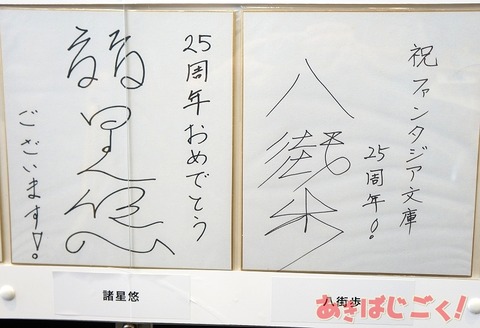 25周年おめでとう
ございます!
諸星悠
祝 ファンタジア文庫
25周年!
八街歩
諸星悠
八街歩
あきばじごく!